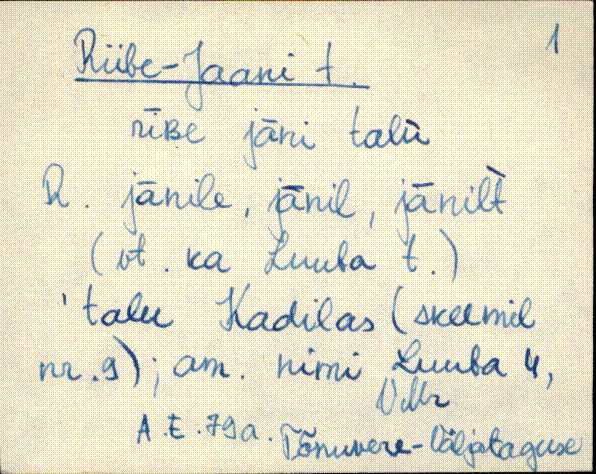 1
Riibe-Jaani t.
rīʙe jāni talù
R. jānile, jānil, jānilt̀
(vt. ka Luuba t.)
'talu Kadilas (skeemil
nr. 9); am. nimi Luuba 4,
VMr
A.E. 79a. Tõnuvere-Väljataguse